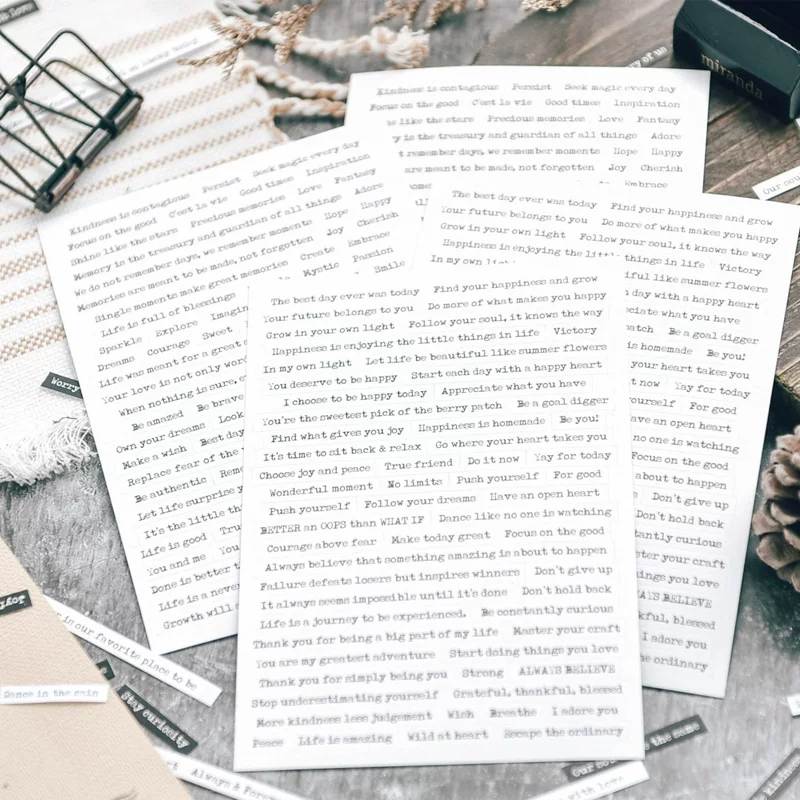 miranda
Kindness is contagious Persist Seek magic every day
Focus on the good C'est la vie Good times Inspiration
like the stars Precious memories Love Fantasy
is the treasury and guardian of all things Adore
remember days, we remember moments Hope Happy
are meant to be made, not forgotten Joy Cherish
Embrace
Kindness is contagious Persist Seek magic every day
Focus on the good C'est la vie Good times Inspiration
Shine like the stars Precious memories Love Fantasy
Memory is the treasury and guardian of all things Adore
We do not remember days, we remember moments Hope Happy
Memories are meant to be made, not forgotten Joy Cherish
Single moments make great memories Create Embrace
Life is full of blessings Mystic Passion
Sparkle Explore Smile
Dreams Courage Sweet
Life was meant for a great
Your love is not only
When nothing is sure,
Be amazed Be brave
Own your dreams Look
Make a wish Best day
Replace fear of the
Be authentic
Let life surprise
It's the little
Life is good
You and me You
Done is better
Life is a never
Growth will
The best day ever was today Find your happiness and grow
Your future belongs to you Do more of what makes you happy
Grow in your own light Follow your soul, it knows the way
Happiness is enjoying the things in life Victory
In my own like summer flowers
day with a happy heart
what you have
Be a goal digger
is homemade Be you!
your heart takes you
now Yay for today
For good
an open heart
no one is watching
Focus on the good
about to happen
Don't give up
Don't hold back
curious
your craft
you love
BELIEVE
blessed
I adore you
the ordinary
The best day ever was today Find your happiness and grow
Your future belongs to you Do more of what makes you happy
Grow in your own light Follow your soul, it knows the way
Happiness is enjoying the little things in life Victory
In my own light Let life be beautiful like summer flowers
You deserve to be happy Start each day with a happy heart
I choose to be happy today Appreciate what you have
You're the sweetest pick of the berry patch Be a goal digger
Find what gives you joy Happiness is homemade Be you!
It's time to sit back & relax Go where your heart takes you
Choose joy and peace True friend Do it now Yay for today
Wonderful moment No limits Push yourself For good
Push yourself Follow your dreams Have an open heart
BETTER an OOPS than WHAT IF Dance like no one is watching
Courage above fear Make today great Focus on the good
Always believe that something amazing is about to happen
Failure defeats losers but inspires winners Don't give up
It always seems impossible until it's done Don't hold back
Life is a journey to be experienced. Be constantly curious
Thank you for being a big part of my life Master your craft
You are my greatest adventure Start doing things you love
Thank you for simply being you Strong ALWAYS BELIEVE
Stop underestimating yourself Grateful, thankful, blessed
More kindness less judgement Wish Breathe I adore you
Peace Life is amazing Wild at heart Escape the ordinary
Worry
is our favorite place to be
Dance in the rain
Stay curiosity
Always & Forever
the same
with love
of us
Our